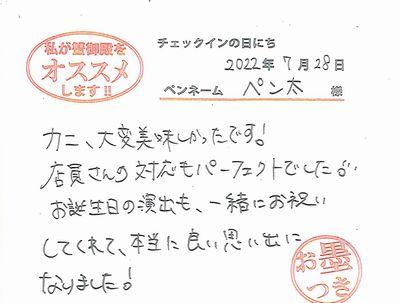 私が蟹御殿を
オススメ
します!!
チェックインの日にち
2022年7月28日
ペンネーム ペン太 様
カニ、大変美味しかったです!
店員さんの対応もパーフェクトでした♪
お誕生日の演出も、一緒にお祝い
してくれて、本当に良い思い出に
なりました!
お墨
つき